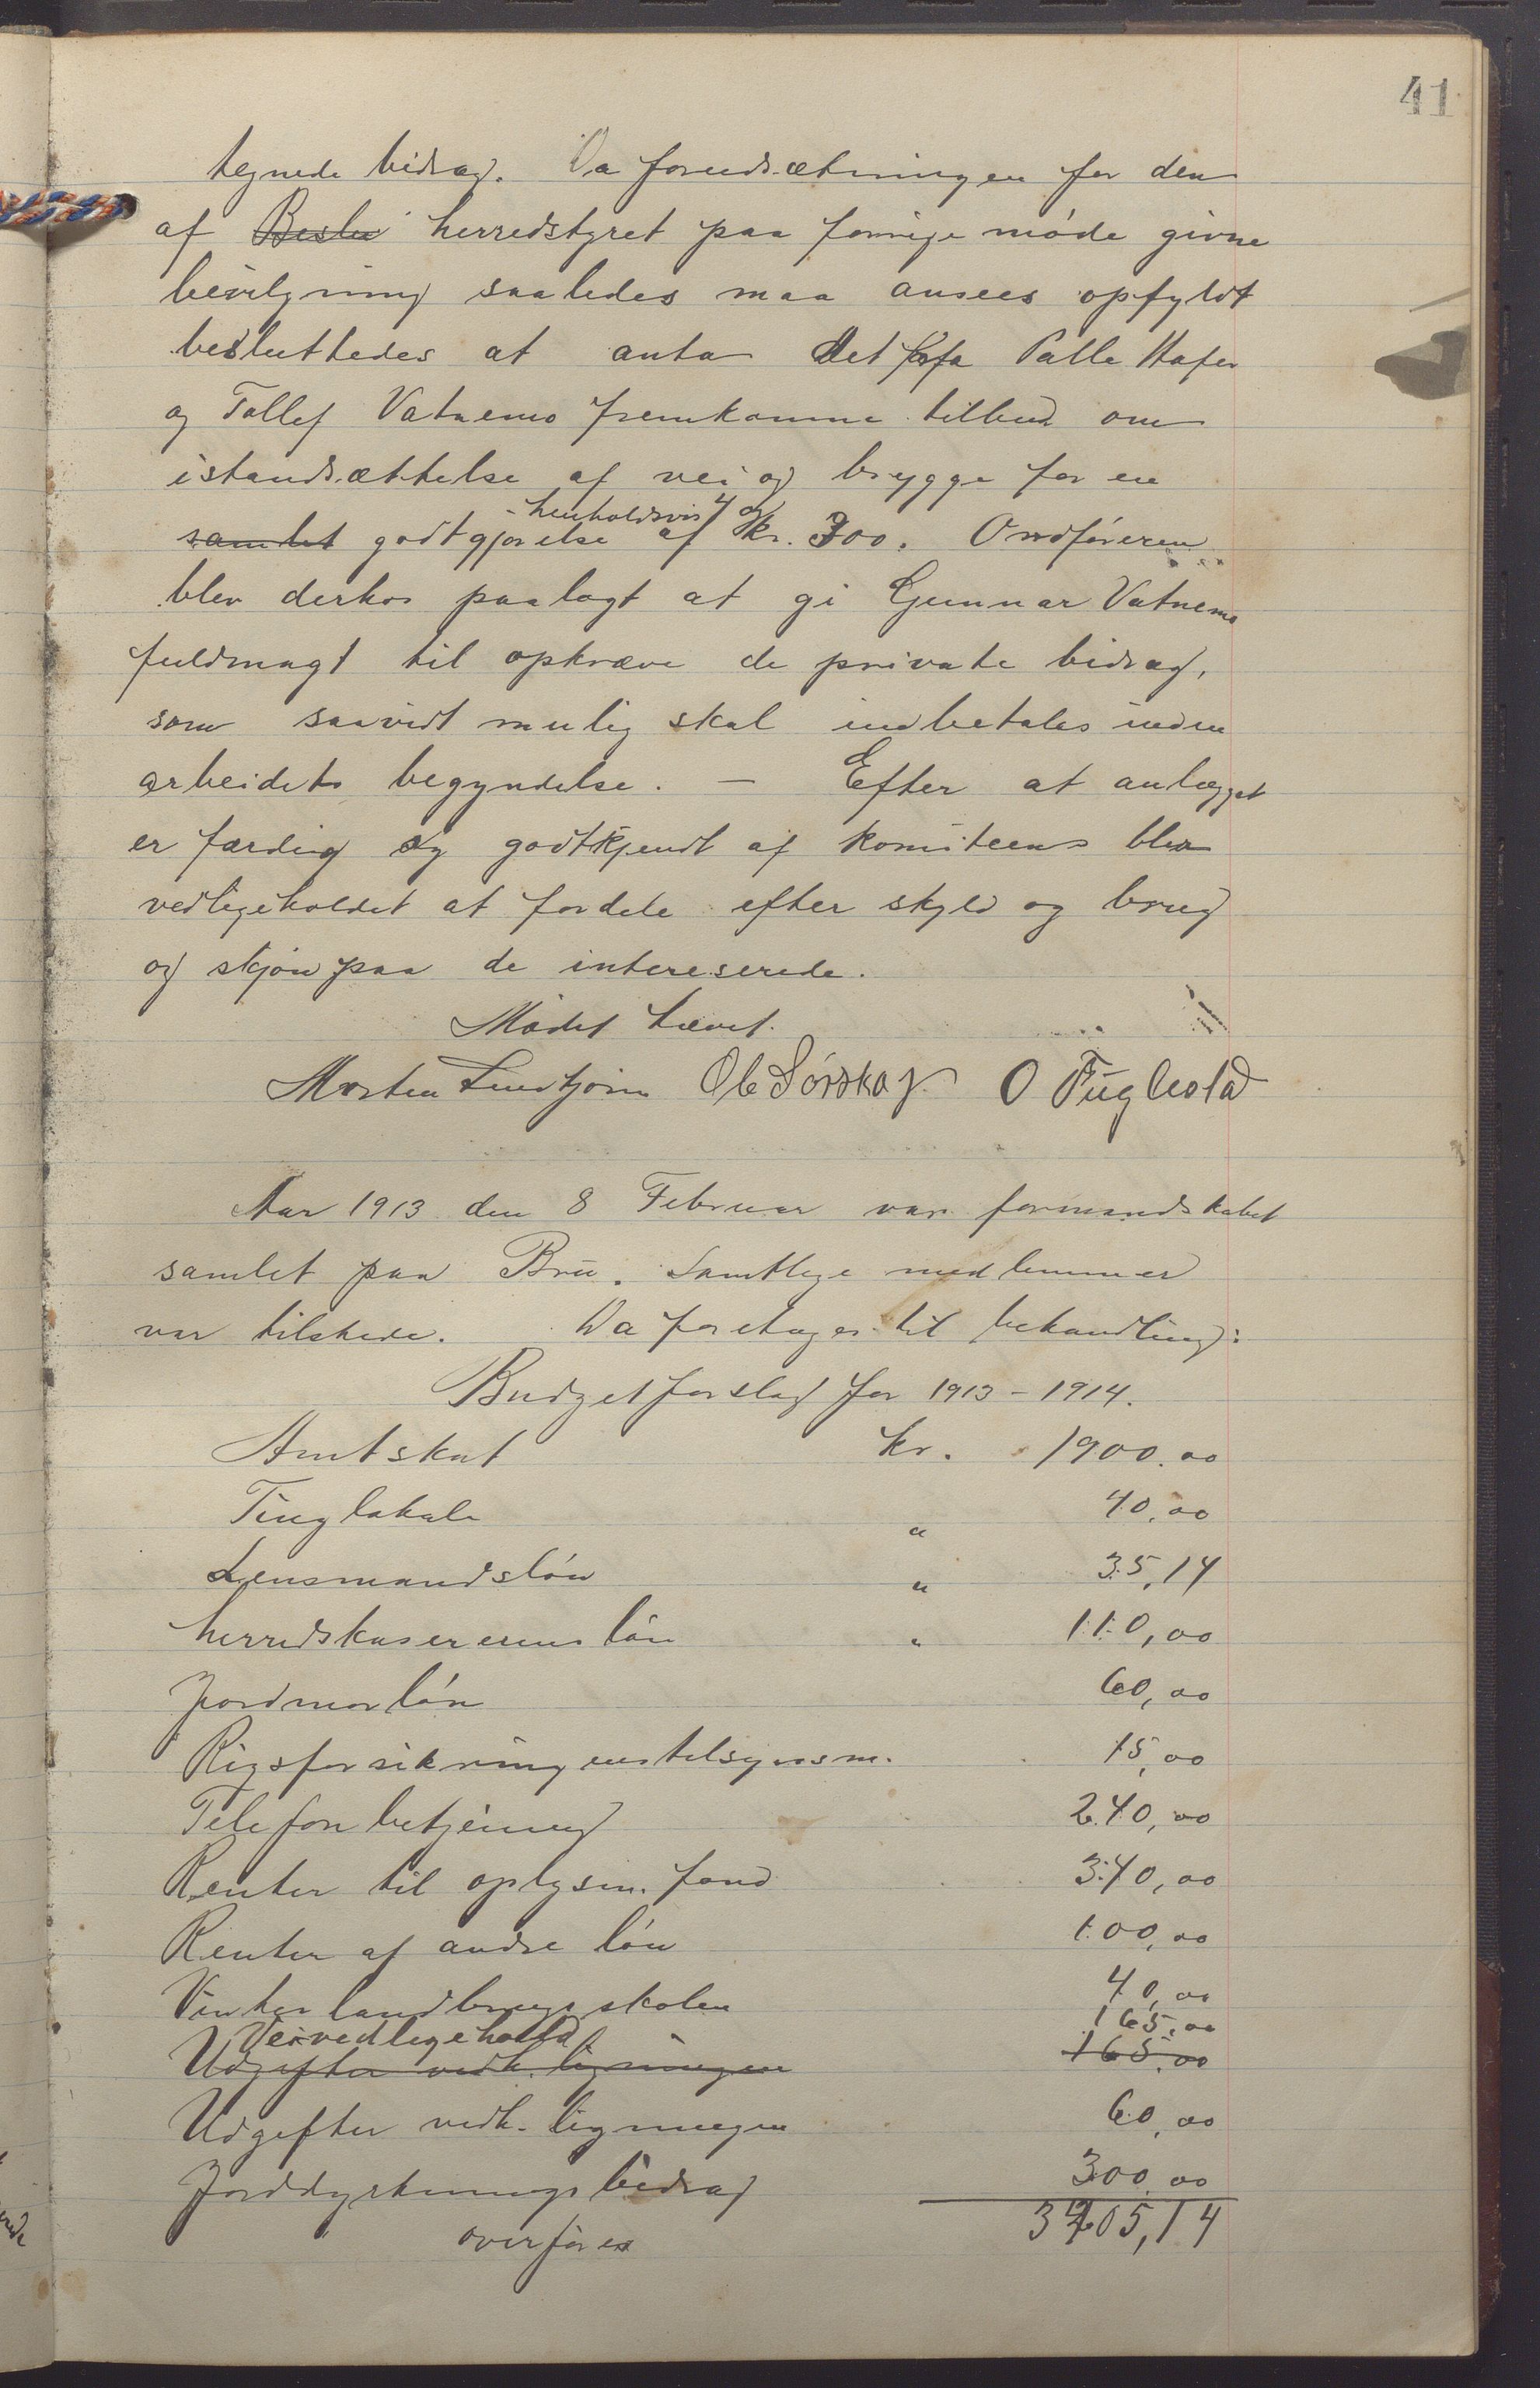 41
tegnede bidrag. Da forudsætningen for den
af Beslu herredstyret paa forrige møde givne
bevilgning saaledes maa ansees opfyldt
besluttedes at anta det fra Palle Hafer
og Tollef Vatnemo fremkomne tilbud om
istandsættelse af vei og brygge for en
henholdsvis 4 og
samlet godtgjørelse af kr. 300. Ordføreren
blev derhos paalagt at gi Gunnar Vatnemo
fuldmagt til opkræve de private bidrag,
som saavidt mulig skal indbetales inden
arbeidets begyndelse. — Efter at anlægget
er færdig og godtkjendt af komiteen blir
vedligeholdet at fordele efter skyld og brug
og skjøn paa de intereserede.
Mødet hævet.
Morten Lindtjørn Ole Sörskog O Fuglestad
Aar 1913 den 8 Februar var formandskabet
samlet paa Bru. Samtlige medlemmer
var tilstede. Da foretages til behandling:
Budgetforslag for 1913 - 1914.
Amtskat kr. 1900.00
Tinglokale " 40,00
Lensmandsløn " 35,14
herredskasererens løn " 110,00
Jordmorløn 60,00
Rigsforsikringens tilsynsm. 15,00
Telefonbetjening 240,00
Renter til oplysn. fond 340,00
Renter af andre lån 100,00
Vinterlandbrugsskolen 40,00
Veivedligehold 165,00
Udgifter vedk. ligningen 165,00
Udgifter vedk. ligningen 60,00
Jorddyrkningsbidrag 300,00
overføres 3405,14